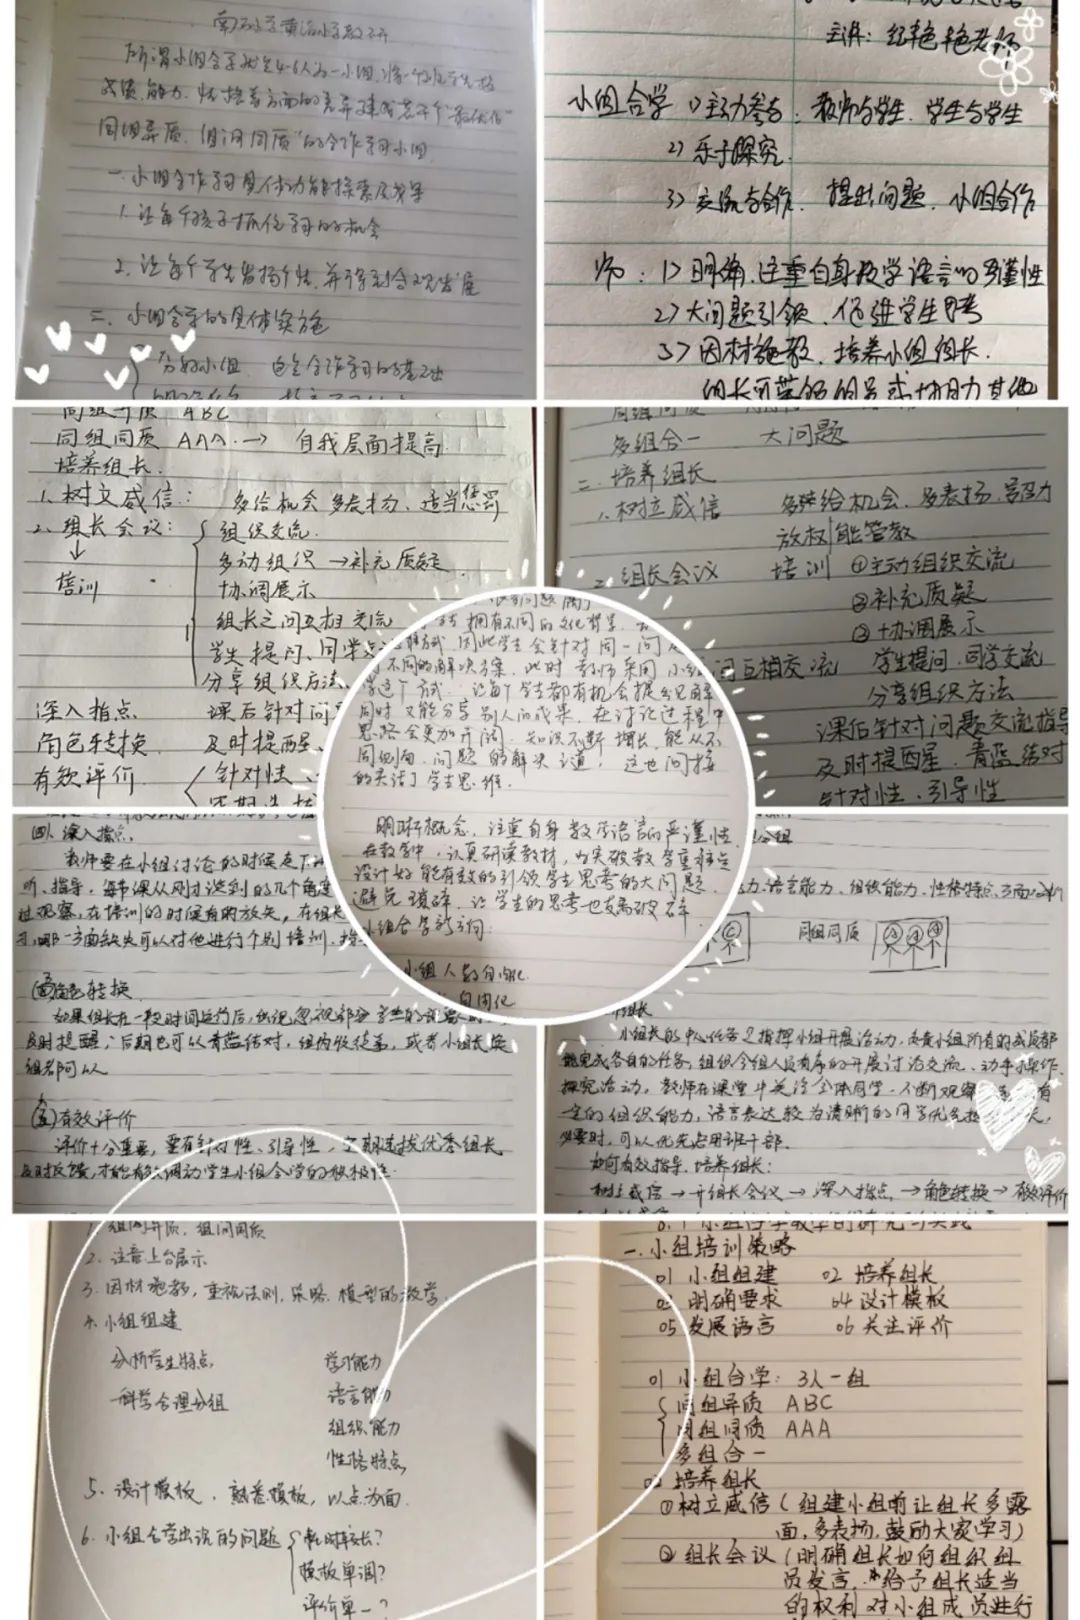 所谓小组合学就是4-6人为一小组,将一个
成绩、能力、性格等方面的差异建成若干个
同组异质,组间同质"的合作学习小组
一、小组合作学习具体功能探索及成果
1. 让每个孩子抓住学习的机会
2. 让每个学生发扬个性,并得到合
二、小组合学的具体实施
分好小组
主讲:纪艳艳老师
小组合学 1) 主动参与: 教师与学生、学生与学生
2) 乐于探究
3) 交流与合作、提出问题、小组合作
师: 1) 明确,注重自身教学语言的严谨性
2) 大问题引领、促进学生思考
3) 因材施教、培养小组组长.
同组异质 ABC
同组同质 AAA → 自我层面提高
培养组长.
1. 树立威信: 多给机会 多表扬、适当惩罚
2. 组长会议: 组织交流.
多动组织 → 补充质疑
培训
协调展示
组长之间互相交流
学生提问、同学
分享组织方法、
深入指点 课后针对问
角色转换 及时提醒、
有效评价 针对性
多组合一 大问题
二、培养组长
1、树立威信 多给机会、多表扬、号召力
放权 能管教
2、组长会议 培训 ①主动组织交流
②补充质疑
③协调展示
间互相交流 学生提问、同学交流
分享组织方法
课后针对问题交流指导
及时提醒、青蓝结对
针对性、引导性
拥有不同的文化背景
因此学生会针对同一问
不同的解决方案,此时教师采用小组
学这个方式,让每个学生都有机会提出见解
同时又能分享别人的成果,在讨论过程中
思路会更加开阔,知识不断增长,能从不
同侧面
这也间接
的灵活了学生思维.
明晰概念,注重自身教学语言的严谨性
在教学中,认真研读教材,为突破教学重难点
设计好能有效的引领学生思考的大问题
避免琐碎,让学生的思考也支离破碎
小组合学
小组人数
四、深入指点
教师要在小组讨论的时候走下
听、指导,每节课从刚才谈到的几个角度
性观察,在培训的时候有的放矢,在组长
哪一方面缺失可以对他进行个别培训
角色转换
如果组长在一段时间运行后,
及时提醒;后期也可以青蓝结对,组内收徒弟,或者小组长换
组都可以
(五)有效评价
评价十分重要,要有针对性、引导性,定期选拔优秀组长
及时反馈,才能有效调动学生小组合学的积极性.
力、语言能力、组织能力、性格特点、方面
C 同组同质 A A A
小组长的中心任务是指挥小组开展活动,负责小组所有的成员都
能完成各自的任务,组织令组人员有序的开展讨论交流、动手操作、
探究活动,教师在课堂中关注全体同学,不断观察
一定的组织能力,语言表达较为清晰的同学优先
必要时,可以优先启用班干部.
如何有效指导、培养组长:
树立威信→开组长会议→深入指点→角色转换→有效评价
1. 组内异质,组间同质
2. 注意上台展示
3. 因材施教,重视法则、策略、模型的教学.
4. 小组组建
分析学生特点 学习能力
科学合理分组 语言能力
组织能力
性格特点
5、设计模板、熟悉模板,以点为面.
6. 小组合学出现的问题 耗时较长?
模板单调?
评价单一?
一、小组培训策略
01 小组组建 02 培养组长
03 明确要求 04 设计模板
05 发展语言 06 关注评价
01 小组合学: 3人一组
同组异质 ABC
同组同质 AAA
多组合一
02 培养组长
①树立威信(组建小组前让组长多露
面,多表扬,鼓励大家学习)
②组长会议(明确组长如何组织组
员发言,给予组长适当
的权利 对小组成员进行